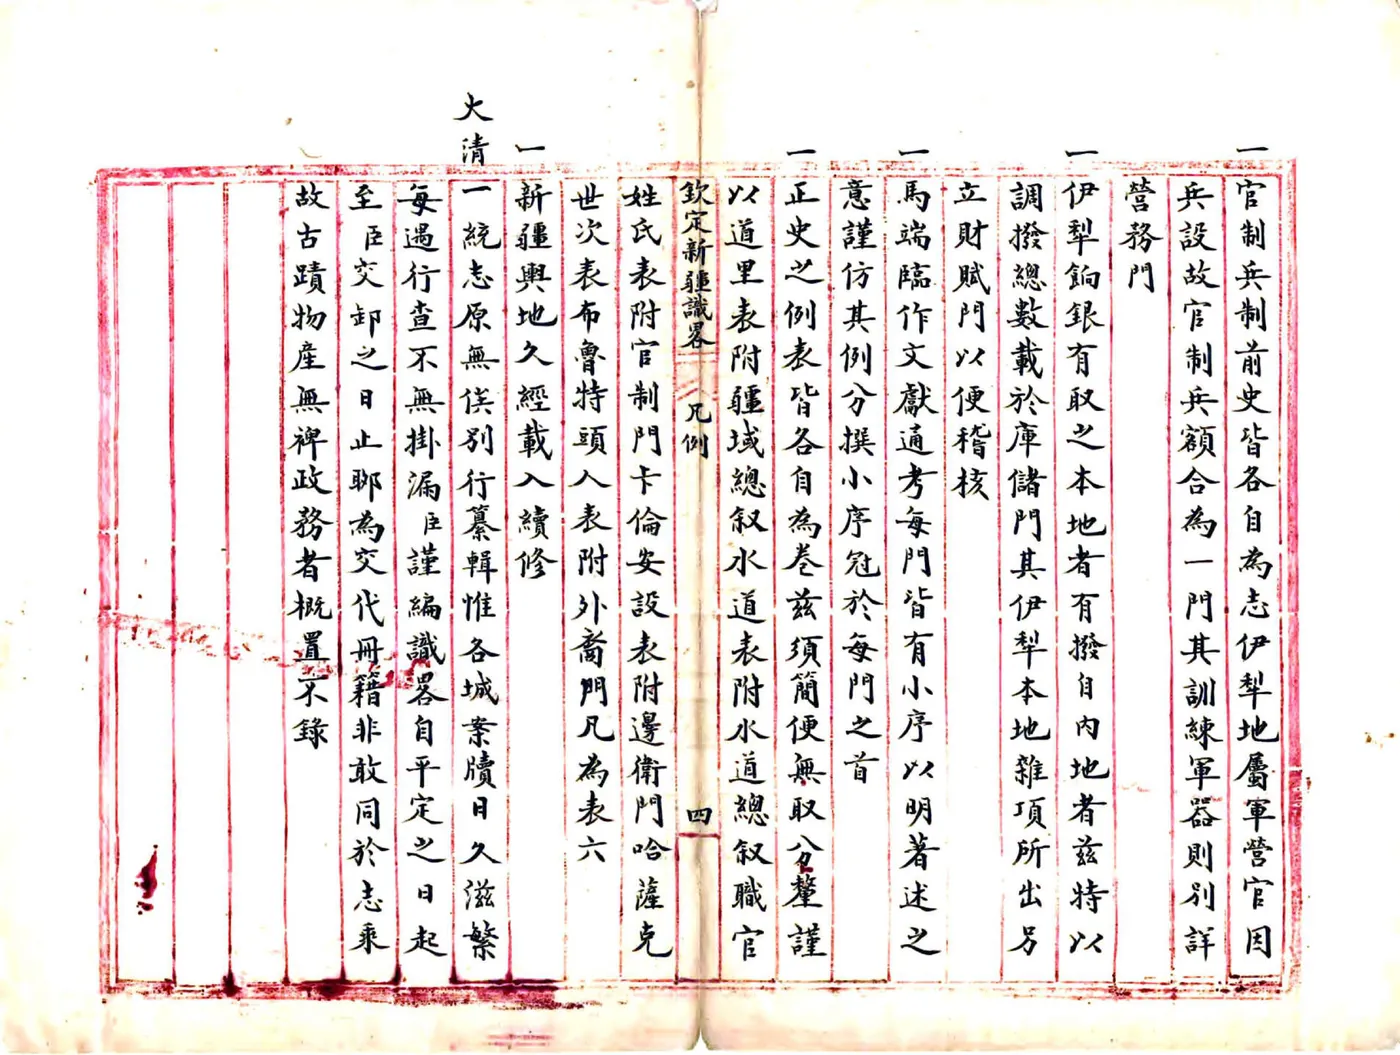 一官制兵制前史皆各自為志伊犁地屬軍營官因
兵設故官制兵額合為一門其訓練軍器則別詳
營務門
一伊犁餉銀有取之本地者有撥自內地者茲特以
調撥總數載於庫儲門其伊犁本地雜項所出另
立財賦門以便稽核
一馬端臨作文獻通考每門皆有小序以明著述之
意謹仿其例分撰小序冠於每門之首
一正史之例表皆各自為卷茲須簡便無取分釐謹
以道里表附疆域總叙水道表附水道總叙職官
欽定新疆識畧 凡例 四
姓氏表附官制門卡倫安設表附邊衛門哈薩克
世次表布魯特頭人表附外裔門凡為表六
一新疆輿地久經載入續修
大清一統志原無俟別行纂輯惟各城案牘日久滋繁
每遇行查不無掛漏臣謹編識畧自平定之日起
至臣交卸之日止聊為交代冊籍非敢同於志乘
故古蹟物產無裨政務者概置不錄